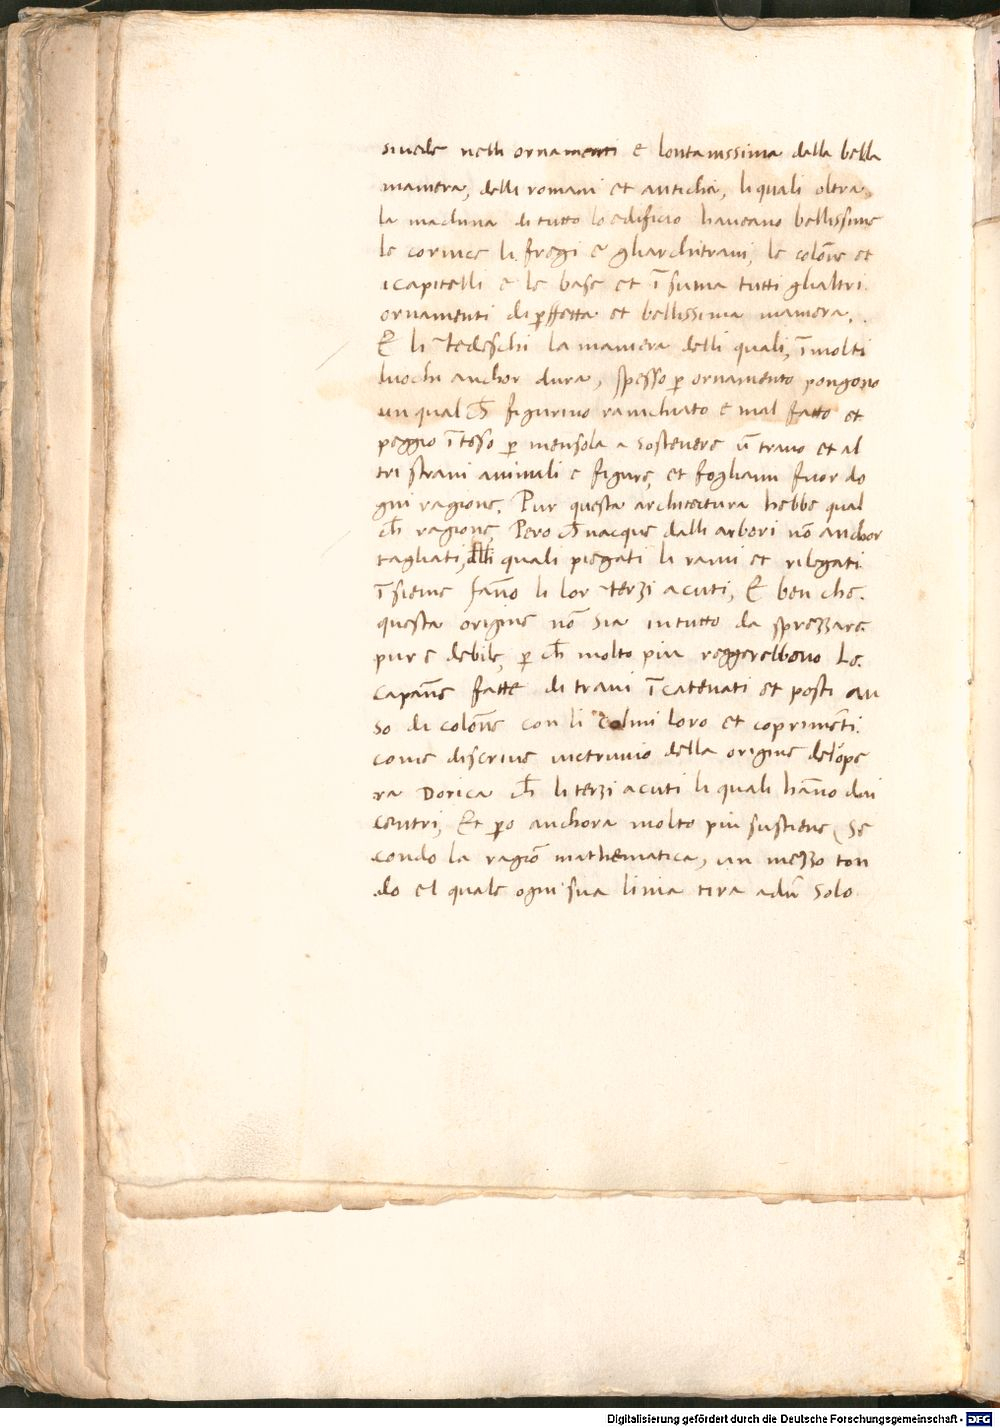 si vede nelli ornamenti e lontanissima dalla bella
maniera, delli romani et antichi, li quali oltra
la machina di tutto lo edificio haveano bellissime
le cornice li fregi e gliarchitravi, le colōne et
i capitelli e le base et ī suma tutti glialtri
ornamenti di perfetta et bellissima maniera.
E li Tedeschi la maniera delli quali, ī molti
luochi anchor dura, spesso p ornamento pongono
un qual ch figurino ranichiato e mal fatto et
peggio īteso p mensola a sostenere ū travo et al
tri strani animali e figure, et fogliami fuor do
gni ragione. Pur questa architectura hebbe qual
ch ragione, Pero ch nacque dalli arbori nō anchor
tagliati, alli quali piegati li rami et rilegati
īsieme fāno li lor Terzi acuti, E ben che
questa origine nō sia in tutto da sprezzare
pur e debile, p ch molto piu reggerebbeno Le
capāne fatte di travi īcatenati et posti au
so di colōne con li colmi loro et coprimēti
come discrive victruvio della origine del ope
ra Dorica ch li terzi acuti li quali hāno doi
centri, Et po anchora molto piu sustiene (Se
condo la ragiō mathematica, un mezzo ton
do el quale ogni sua linia tira adū solo